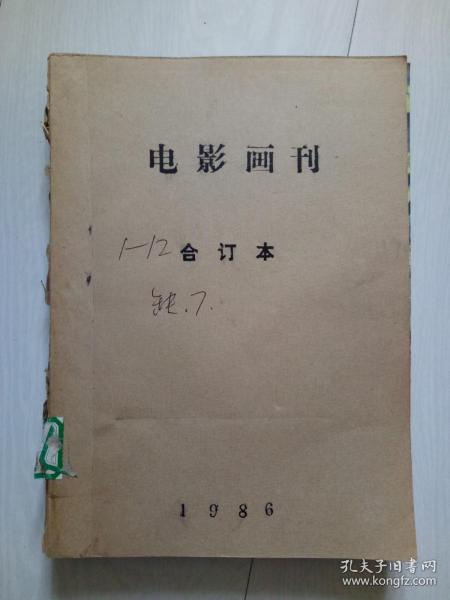 电影画刊
1-12 合订本
缺.7.
1986
孔夫子旧书网
www.kongfz.com